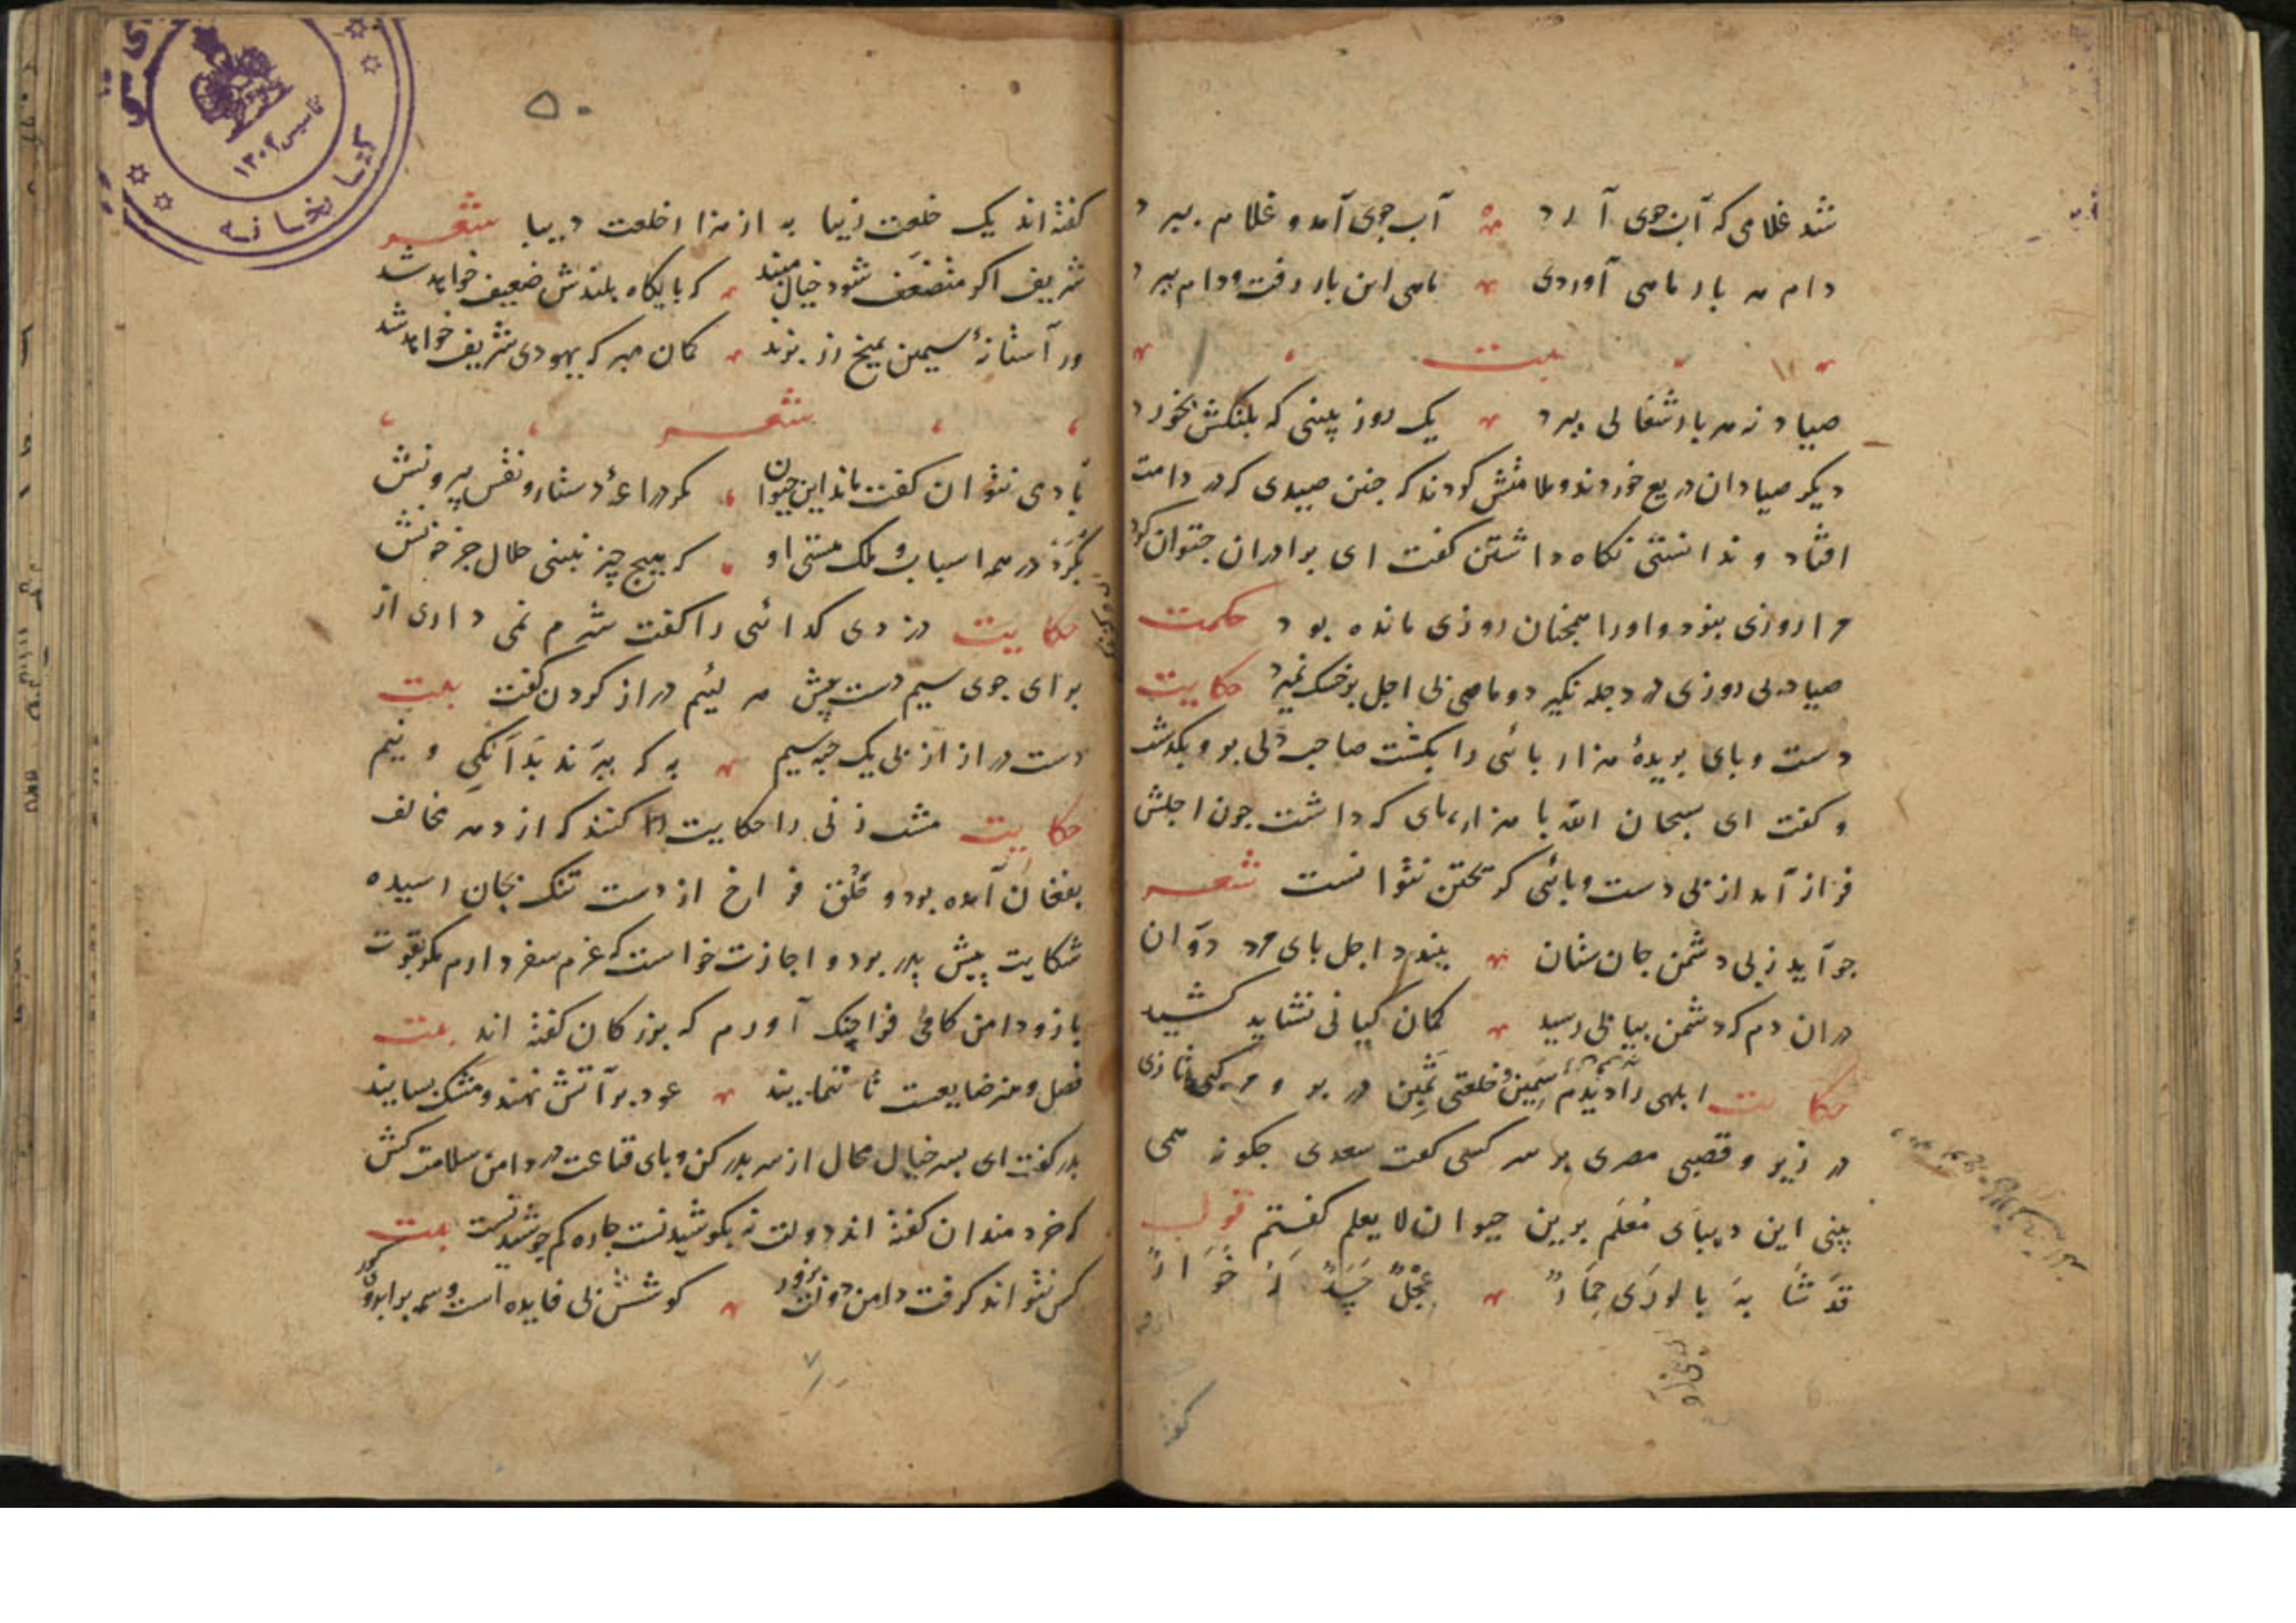 شد غلامی که آب جوی آرد آب جوی آمد و غلام ببرد
دام هر بار ماهی آوردی ماهی این بار رفت و دام ببرد
بیت
صیاد نه هر بار شغالی ببرد یک روز ببینی که پلنکش بخورد
دیکر صیادان دریغ خوردند و ملامتش کردند که جنین صیدی که در دامت
افتاد و ندانستی نکاه داشتن کفت ای برادران جتوان کرد
مرا روزی نبود و او را همجنان روزی مانده بود حکمت
صیاد بی روزی در دجله نکیرد و ماهی بی اجل بر خشک نمیرد حکایت
دست و بای بریدهٔ هزار بائی را بکشت صاحب دلی برو بکذشت
و کفت ای سبحان الله با هزار بای که داشت جون اجلش
فراز آمد از بی دست و بائی کریختن نتوانست شعر
جو آید ز بی دشمن جان ستان ببندد اجل بای مرد دوان
دران دم که دشمن بیابی رسید کمان کیانی نشاید کشید
حکایت ابلهی را دیدم سمین و خلعتی ثمین در بر و مرکبی تازی
در زیر و قصبی مصری بر سر کسی کفت سعدی جکونه همی
بینی این دیبای معلم برین حیوان لا یعلم کفتم قول
قد شابه بالوری حمار عجلا جسدا له خوار
۵۰
کفته‌اند یک خلعت زیبا به از هزار خلعت دیبا شعر
شریف اکر متضعف شود خیال مبند که بایکاه بلندش ضعیف خواهد شد
ور آستانهٔ سیمین بمیخ زر بزند کمان مبر که یهودی شریف خواهد شد
شعر
بآدمی نتوان کفت ماند این حیوان مکر دراعهٔ و دستار و نقش بیرونش
بکرد در همه اسباب و ملک هستی او که هیج چیز نبینی حلال جز خونش
حکایت دزدی کدائی را کفت شرم نمی داری از
برای جوی سیم دست پیش هر لئیم دراز کردن کفت بیت
دست دراز از بی یک حبه سیم به که ببرند بدانکی و نیم
حکایت مشت زنی را حکایت کنند که از دهر مخالف
بفغان آمده بود و حلق فراخ از دست تنک بجان رسیده
شکایت پیش پدر برد و اجازت خواست که عزم سفر دارم مکر بقوت
بازو دامن کامی فراچنک آورم که بزرکان کفته اند بیت
فضل و هنر ضایعست تا ننمایند عود بر آتش نهند و مشک بسایند
پدر کفت ای پسر خیال محال از سر بدر کن و بای قناعت در دامن سلامت کش
که خردمندان کفته اند دولت نه بکوشیدنست جاره کم جوشیدنست بیت
کس نتواند کرفت دامن دولت بزور کوشش بی فایده است وسمه بر ابروی کور
کتابخانه
تاسیس ۱۳۰۲